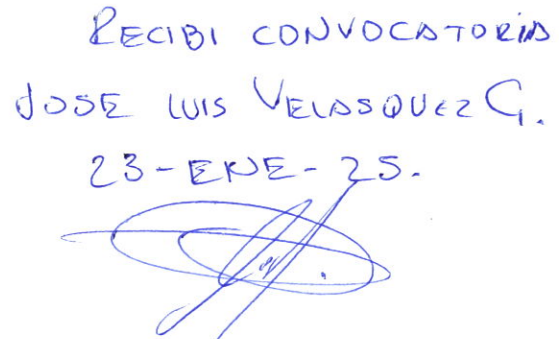 RECIBI CONVOCATORIA
JOSE LUIS VELASQUEZ G.
23-ENE-25.